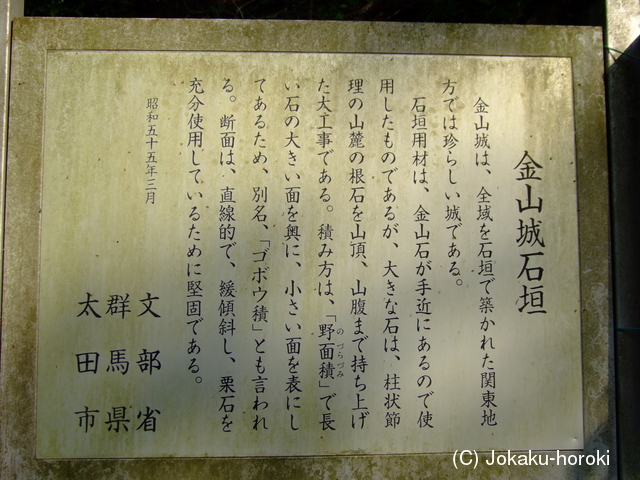 金山城石垣
金山城は、全域を石垣で築かれた関東地
方では珍らしい城である。
石垣用材は、金山石が手近にあるので使
用したものであるが、大きな石は、柱状節
理の山麓の根石を山頂、山腹まで持ち上げ
た大工事である。積み方は、「野面積」で長
のづらづみ
い石の大きい面を奥に、小さい面を表にし
てあるため、別名、「ゴボウ積」とも言われ
る。断面は、直線的で、緩傾斜し、栗石を
充分使用しているために堅固である。
昭和五十五年三月
文部省
群馬県
太田市
(C) Jokaku-horoki